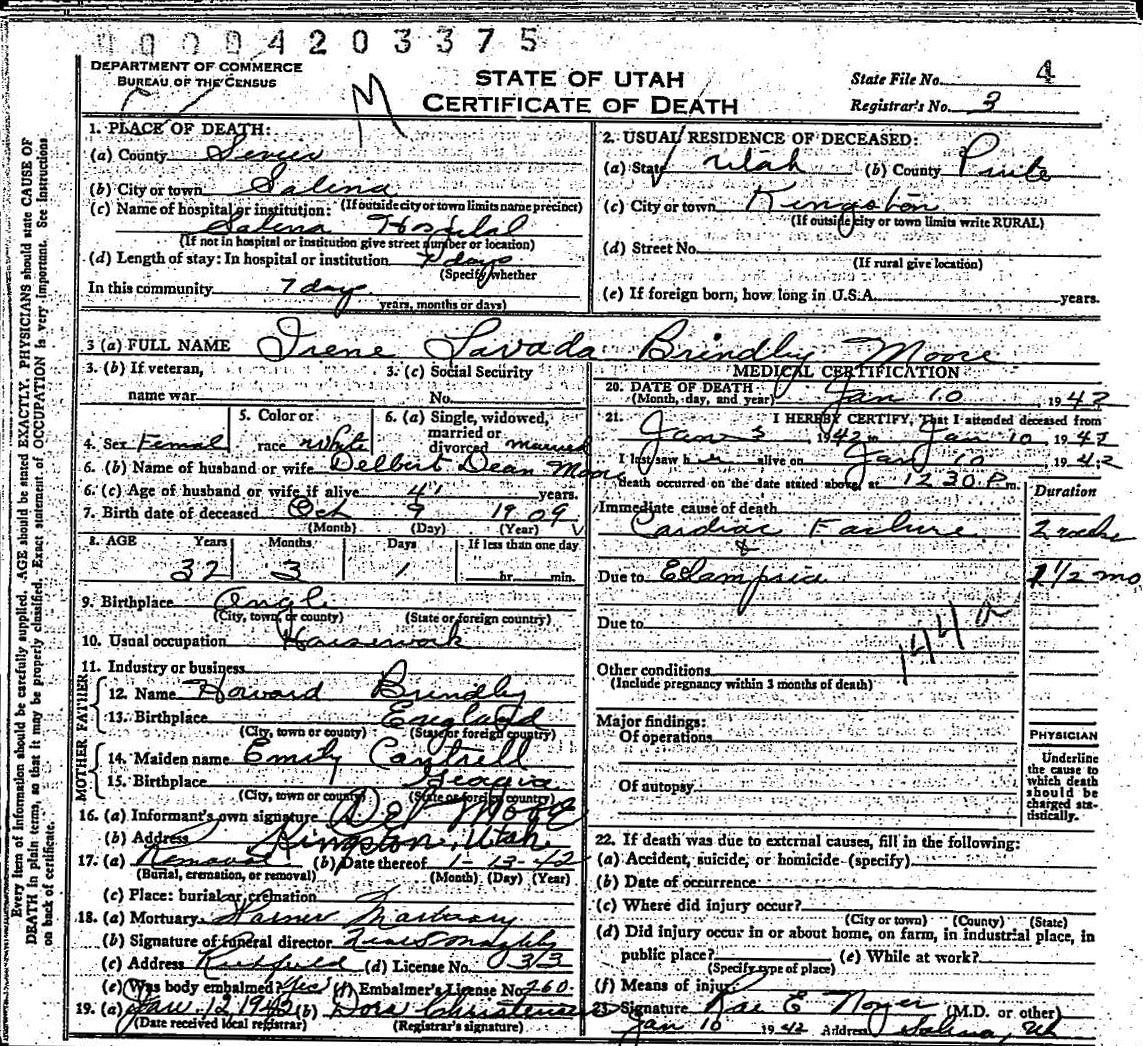 10004203375
DEPARTMENT OF COMMERCE
BUREAU OF THE CENSUS
M
STATE OF UTAH
CERTIFICATE OF DEATH
State File No. 4
Registrar's No. 3
Every item of information should be carefully supplied. AGE should be stated EXACTLY. PHYSICIANS should state CAUSE OF
DEATH in plain terms, so that it may be properly classified. Exact statement of OCCUPATION is very important. See instructions
on back of certificate.
1. PLACE OF DEATH:
(a) County Sevier
(b) City or town Salina
(If outside city or town limits name precinct)
(c) Name of hospital or institution:
Salina Hospital
(If not in hospital or institution give street number or location)
(d) Length of stay: In hospital or institution 7 days
(Specify whether
In this community 7 days
years, months or days)
2. USUAL RESIDENCE OF DECEASED:
(a) State Utah (b) County Piute
(c) City or town Kingston
(If outside city or town limits write RURAL)
(d) Street No.
(If rural give location)
(e) If foreign born, how long in U.S.A. years.
3 (a) FULL NAME Irene Lavada Brindley Moore
3. (b) If veteran,
name war
3. (c) Social Security
No.
4. Sex Femal
5. Color or
race White
6. (a) Single, widowed,
married or
divorced married
6. (b) Name of husband or wife Delbert Dean Moore
6. (c) Age of husband or wife if alive 41 years.
7. Birth date of deceased Oct 9 1909
(Month) (Day) (Year)
8. AGE Years Months Days If less than one day
32 3 1 hr. min.
9. Birthplace Angle
(City, town, or county) (State or foreign country)
10. Usual occupation Housework
11. Industry or business
FATHER
12. Name Howard Brindley
13. Birthplace England
(City, town or county) (State or foreign country)
MOTHER
14. Maiden name Emily Cantrell
15. Birthplace Georgia
(City, town or county) (State or foreign country)
16. (a) Informant's own signature
(b) Address Kingston, Utah
17. (a) Removal (b) Date thereof 1-13-42
(Burial, cremation, or removal) (Month) (Day) (Year)
(c) Place: burial or cremation
18. (a) Mortuary Mortuary
(b) Signature of funeral director
(c) Address Richfield (d) License No. 313
(e) Was body embalmed? Yes (f) Embalmer's License No. 260
19. (a) Jan 12 1942 (b) Dora Christensen
(Date received local registrar) (Registrar's signature)
MEDICAL CERTIFICATION
20. DATE OF DEATH
(Month, day, and year) Jan 10, 1942
21. I HEREBY CERTIFY, That I attended deceased from
Jan 3 1942 to Jan 10, 1942
I last saw her alive on Jan 10 1942
death occurred on the date stated above, at 12 30 P. m.
Duration
Immediate cause of death
Cardiac Failure
&
Due to Eclampsia 1 1/2 mo
Due to
144 a
Other conditions
(Include pregnancy within 3 months of death)
Major findings:
Of operations
Of autopsy
PHYSICIAN
Underline
the cause to
which death
should be
charged sta-
tistically.
22. If death was due to external causes, fill in the following:
(a) Accident, suicide, or homicide (specify)
(b) Date of occurrence
(c) Where did injury occur?
(City or town) (County) (State)
(d) Did injury occur in or about home, on farm, in industrial place, in
public place? (e) While at work?
(Specify type of place)
(f) Means of injury
23 Signature Rae E Noyes (M.D. or other)
Jan 10 1942 Address Salina, Ut